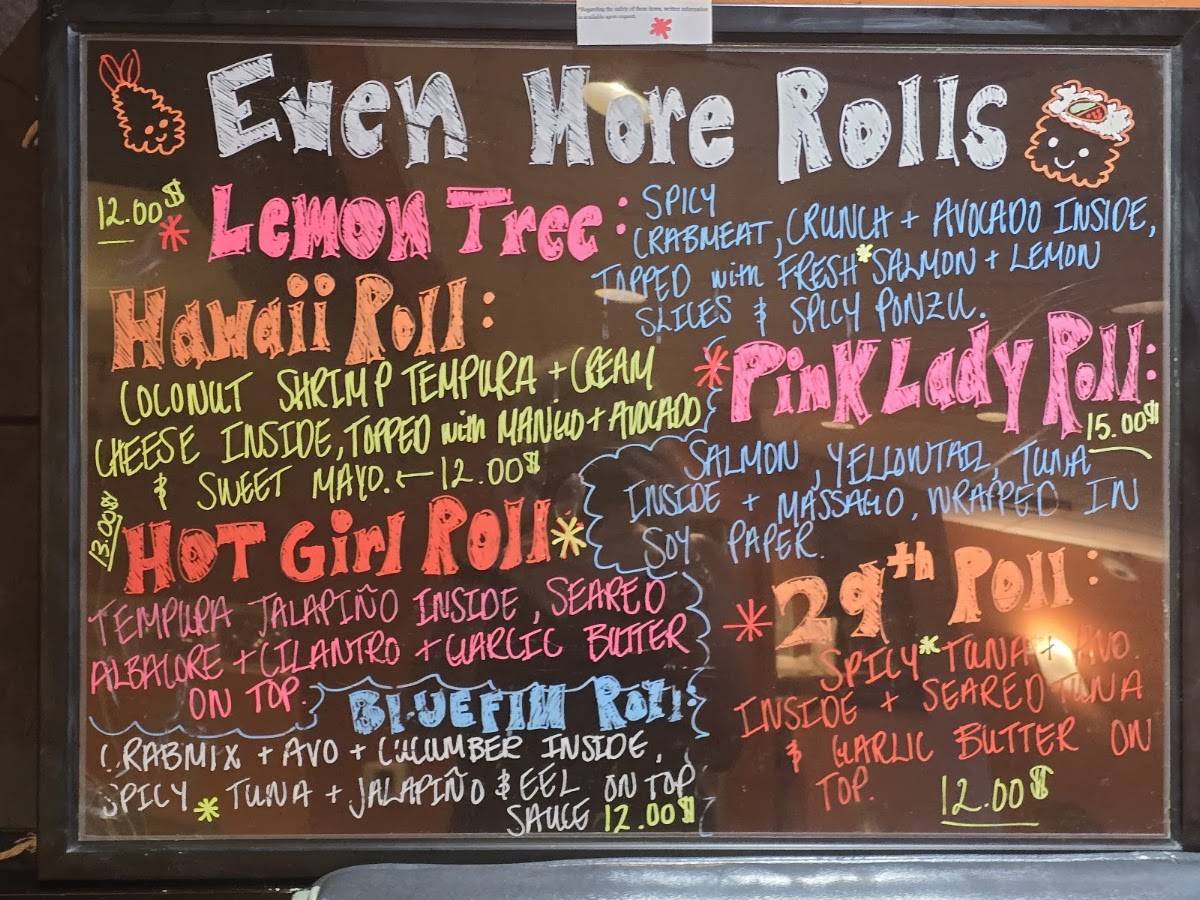 *Regarding the safety of these items, written information
is available upon request. *
Even More Rolls
12.00$
* Lemon Tree:
SPICY
CRABMEAT, CRUNCH + AVOCADO INSIDE,
TOPPED with FRESH * SALMON + LEMON
SLICES & SPICY PONZU.
Hawaii Roll:
COCONUT SHRIMP TEMPURA + CREAM
CHEESE INSIDE, TOPPED with MANGO + AVOCADO
& SWEET MAYO. ← 12.00$
* Pink Lady Roll:
15.00$
SALMON, YELLOWTAIL, TUNA
INSIDE + MASSAGO, WRAPPED IN
SOY PAPER.
13.00$
HOT Girl Roll *
TEMPURA JALAPIÑO INSIDE, SEARED
ALBACORE + CILANTRO + GARLIC BUTTER
ON TOP.
* 29th Roll:
SPICY * TUNA + AVO.
INSIDE + SEARED TUNA
& GARLIC BUTTER ON
TOP.
12.00$
BLUEFIN Roll:
CRABMIX + AVO + CUCUMBER INSIDE,
SPICY * TUNA + JALAPIÑO & EEL ON TOP
SAUCE 12.00$